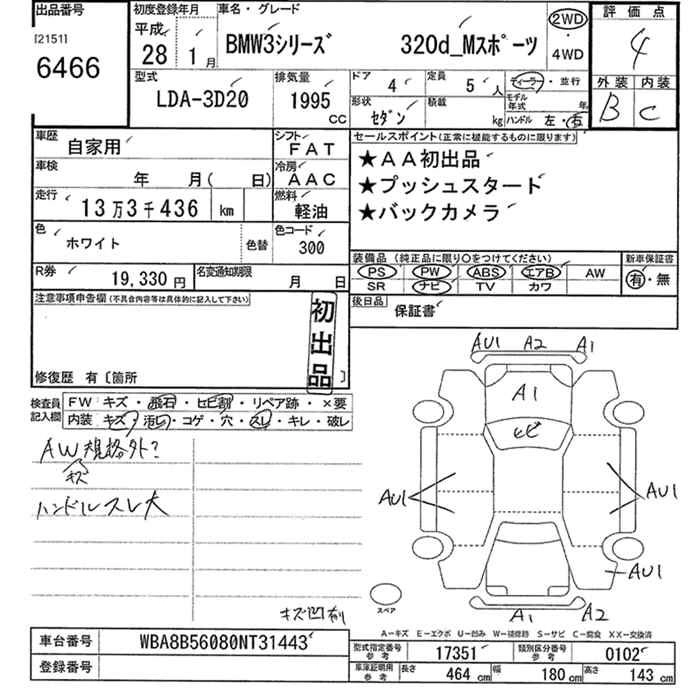 出品番号
[2151]
6466
初度登録年月
平成 28年 1月
車名・グレード
BMW3シリーズ 320d_Mスポーツ
2WD
・
4WD
評価点
4
外装 内装
B C
型式
LDA-3D20
排気量
1995 CC
ドア 4
定員 5人
ディーラー・並行
形状 セダン
積載 kg
モデル年式 年
ハンドル 左・右
車歴 自家用
シフト FAT
車検 年 月( 日)
冷房 AAC
走行 13万3千436 km
燃料 軽油
色 ホワイト
色替
色コード 300
R券 19,330円
名変通知期限 月 日
セールスポイント(正常に機能するものに限ります)
★AA初出品
★プッシュスタート
★バックカメラ
装備品 (純正品に限り○をつけてください)
新車保証書
PS PW ABS エアB AW
SR ナビ TV カワ
有・無
後日品 保証書
注意事項申告欄(不具合内容等は具体的に記入して下さい)
初出品
修復歴 有〔箇所 〕
検査員記入欄
FW キズ・飛石・ヒビ割・リペア跡・×要
内装 キズ・汚れ・コゲ・穴・スレ・キレ・破レ
AW規格外?
キズ
ハンドルスレ大
キズ凹有り
AU1 A2 A1
A1
ヒビ
AU1
AU1
AU1
A1 A2
スペア
A−キズ E−エクボ U−凹み W−補修跡 S−サビ C−腐食 XX−交換済
車台番号 WBA8B56080NT31443
登録番号
型式指定番号 参考 17351
類別区分番号 参考 0102
車庫証明用 参考 長さ 464 cm 幅 180 cm 高さ 143 cm